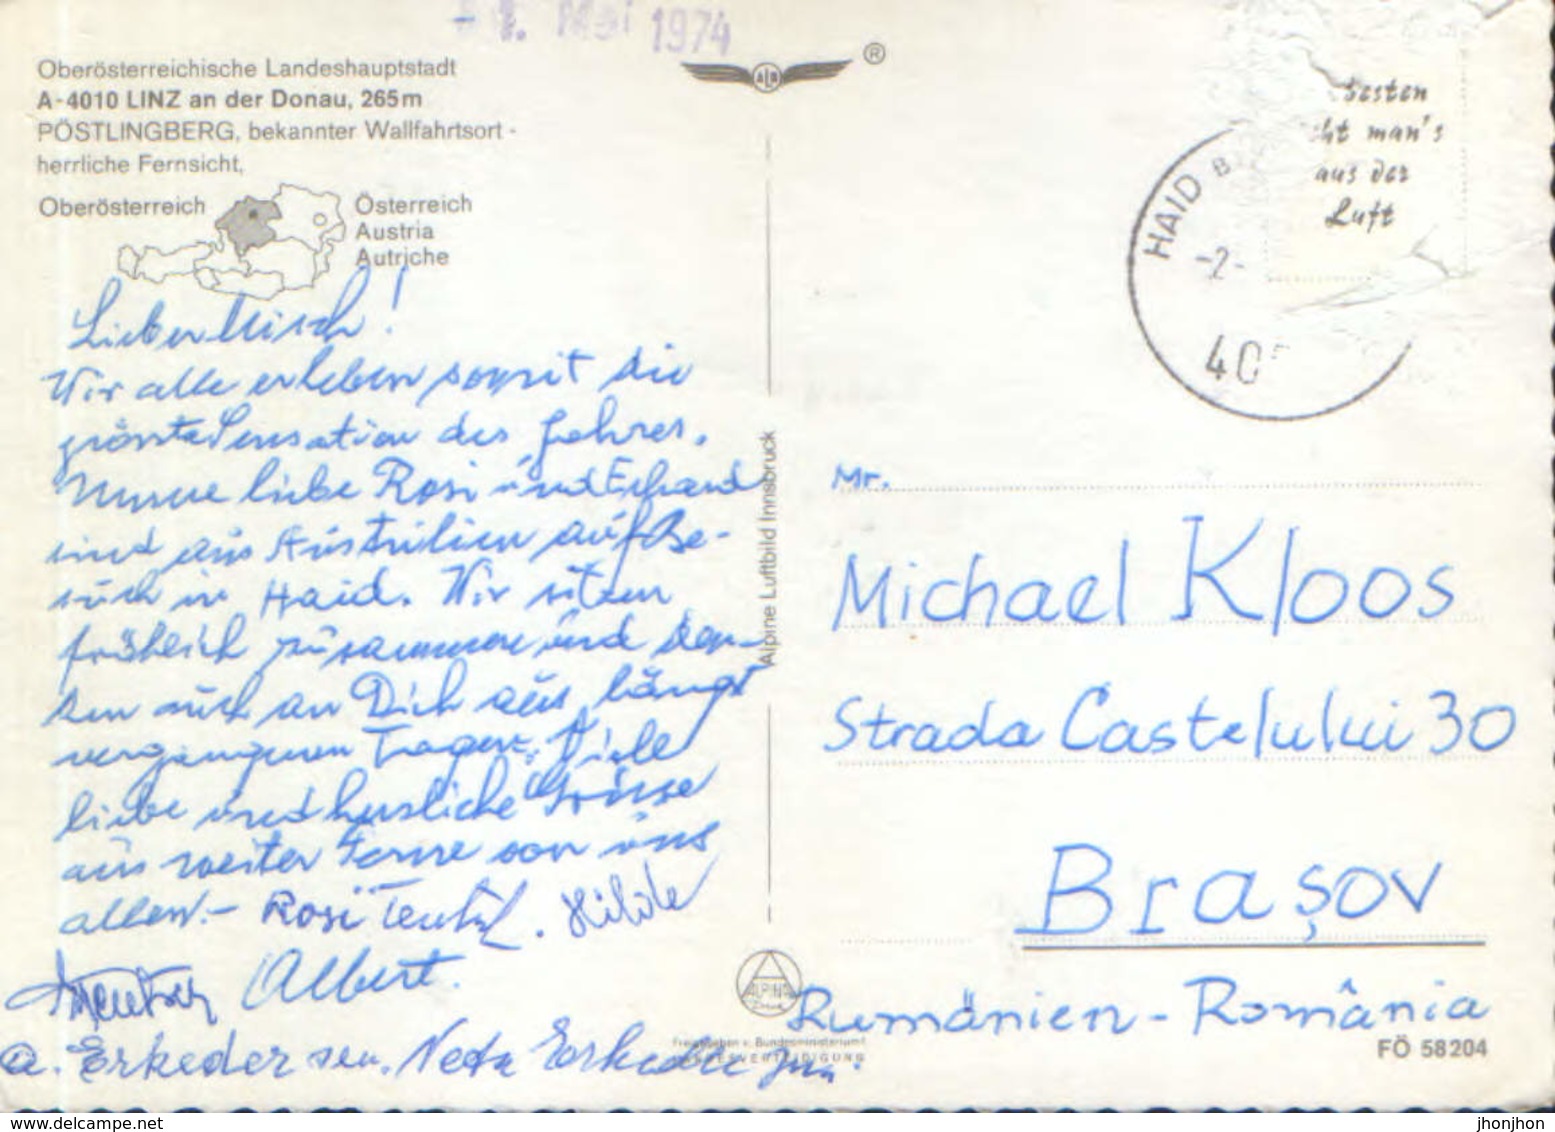 Mai 1974
Oberösterreichische Landeshauptstadt
A-4010 LINZ an der Donau, 265m
PÖSTLINGBERG, bekannter Wallfahrtsort -
herrliche Fernsicht,
Oberösterreich
Österreich
Austria
Autriche
ALB
®
besten
cht man's
aus der
Luft
HAID B
-2-
40
Lieber Misch!
Wir alle erleben somit die
grösste Sensation des Jahres.
Unsere liebe Rosi und Erhard
sind aus Australien auf Be-
such in Haid. Wir sitzen
fröhlich zusammen und den-
ken auch an Dich aus längst
vergangenen Tagen. Viele
liebe und herzliche Grüsse
aus weiter Ferne von uns
allen.- Rosi Teutsch. Hilde
Teutsch Albert.
Erkeder sen. Neta Erkeder jun.
Alpine Luftbild Innsbruck
Mr.
Michael Kloos
Strada Castelului 30
Brașov
Rumänien - România
ALPINE
Freigegeben v. Bundesministerium f.
LANDESVERTEIDIGUNG
FÖ 58204
www.delcampe.net
jhonjhon